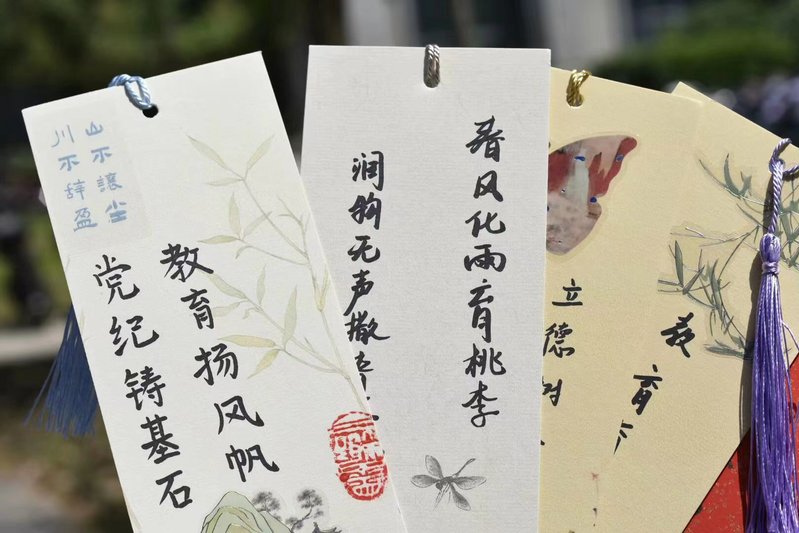 山不讓尘
川不辞盈
教育扬风帆
党纪铸基石
春风化雨育桃李
润物无声撒
立德树
育